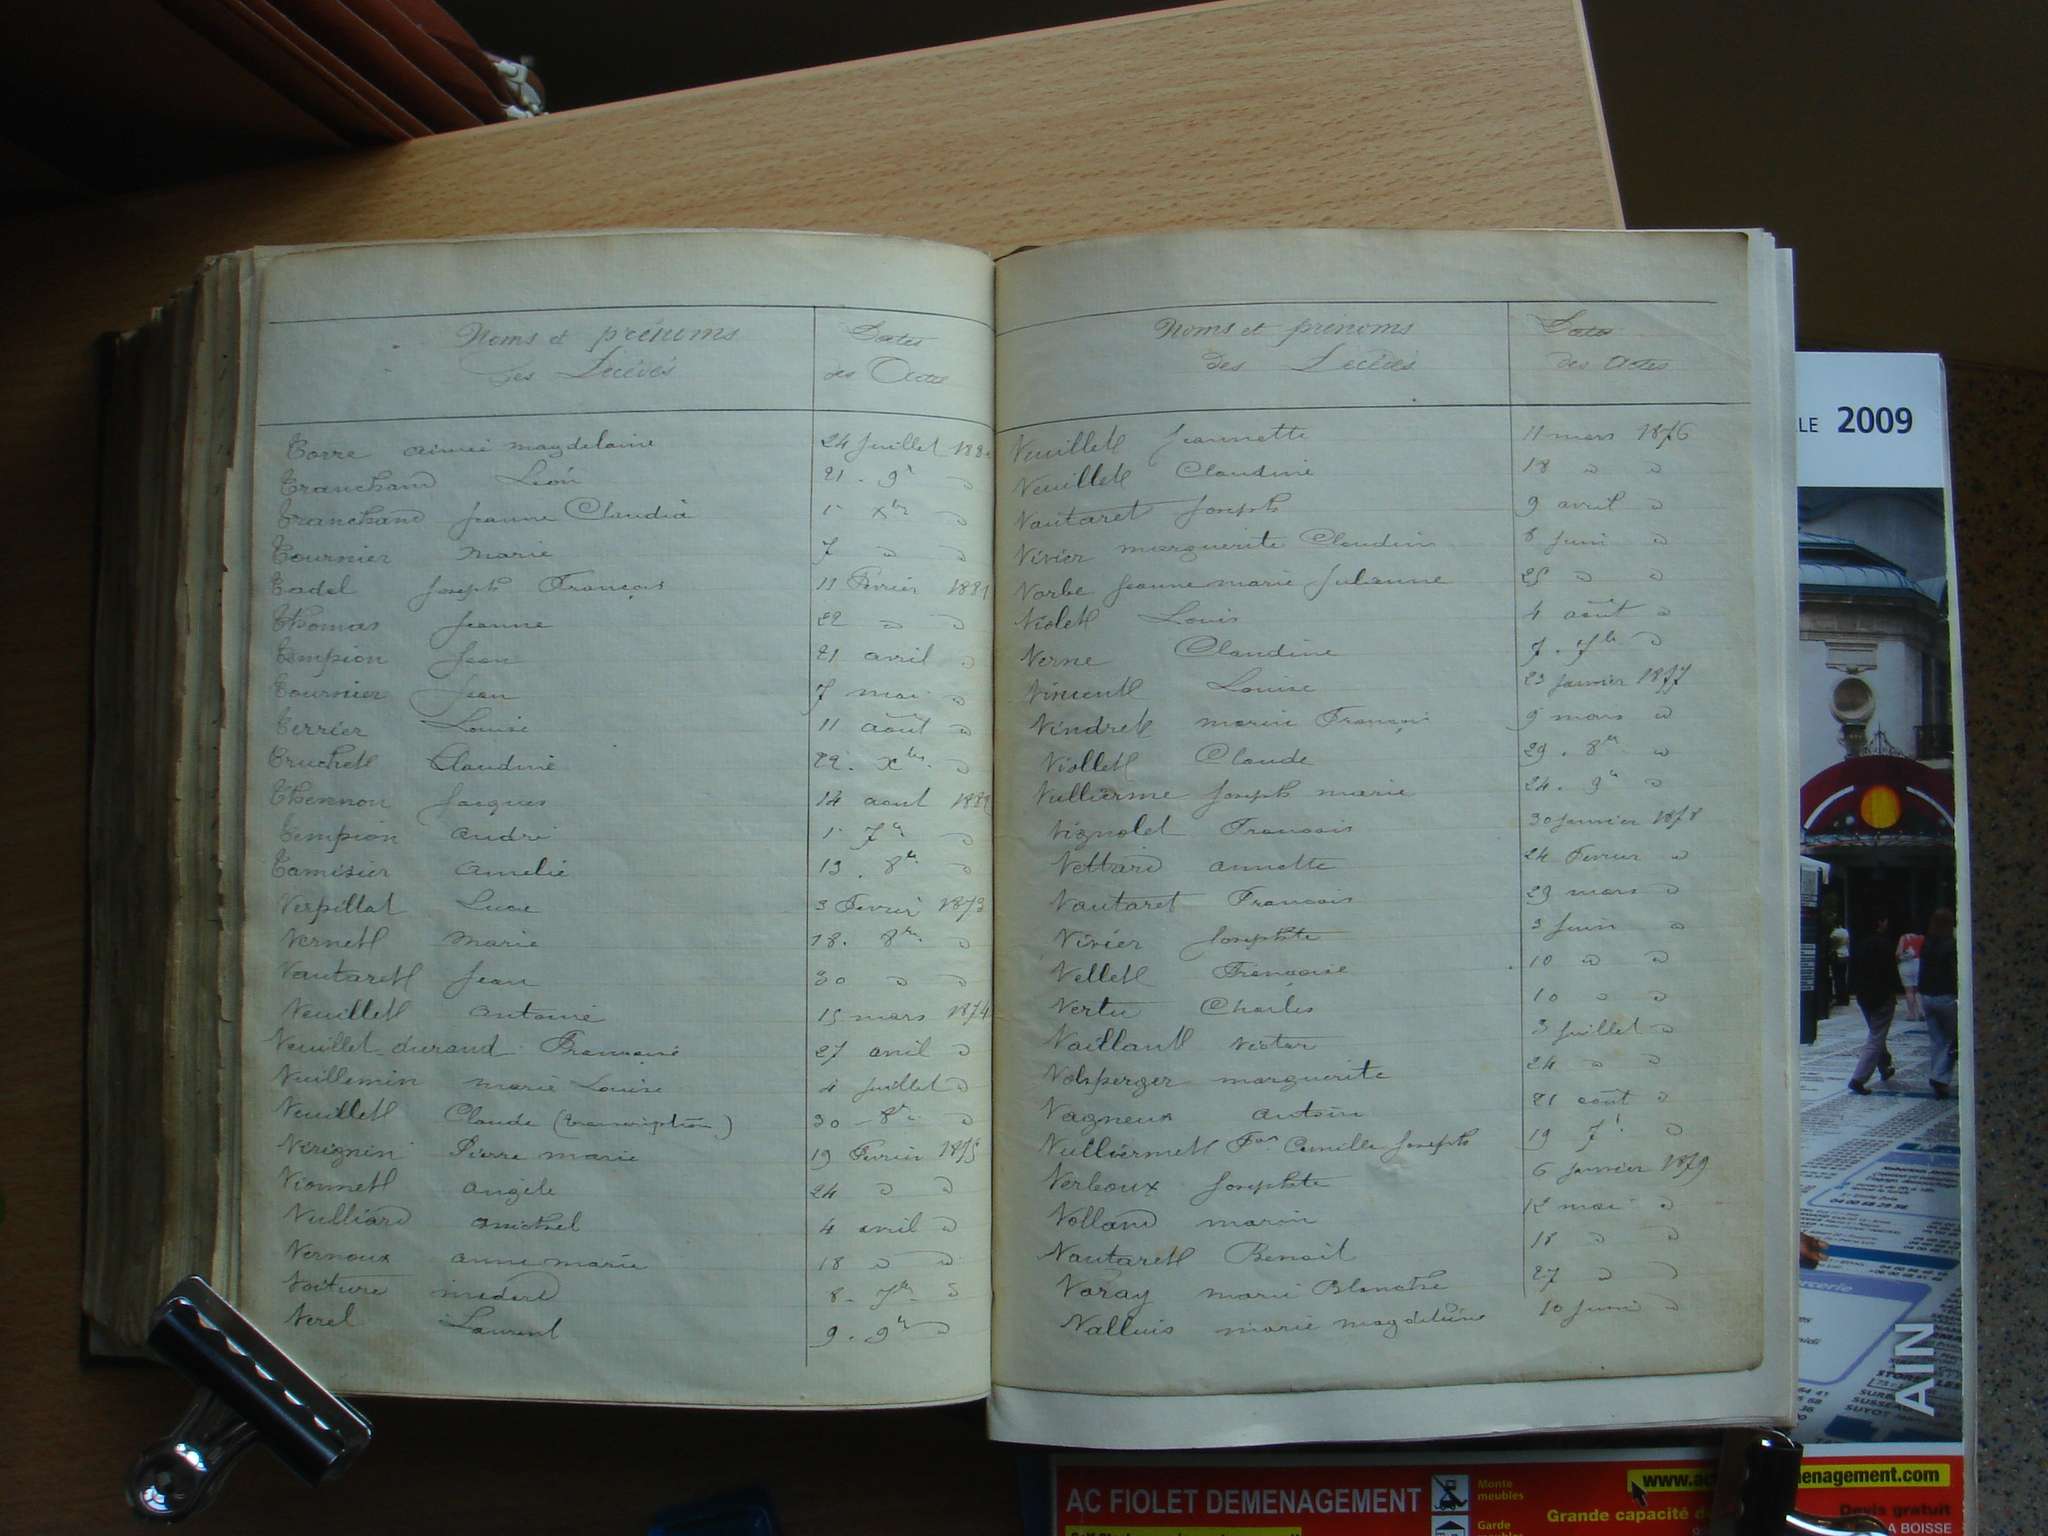 Noms et prénoms
des Décédés
Dates
des Actes
Torre aimée magdelaine 24 Juillet
Tranchand Léon 21 . 9r "
Tranchand Jeanne Claudia 1r Xbr "
Tournier Marie 7 " "
Tadel Joseph François 11 Février 1881
Thomas Jeanne 22 " "
Tempion Jean 21 avril "
Tournier Jean 7 mai "
Terrier Louise 11 août "
Truchet Claudine 22. Xbr. "
Thennon Jacques 14 aout
Tempion andré 1r 7br "
Tamisier Amélie 13. 8br "
Verpillat Lucie 3 Fevrier 1873
Vernet Marie 18. 8bre "
Vautaret Jean 30 " "
Veuillet Antoine 15 mars 1874
Veuillet-durand Françoise 27 avril "
Vuillemin marie Louise 4 Juillet "
Veuillet Claude (transcription) 30 8r "
Pierre marie 19 Fevrier 1875
Vionnet angèle 24 " "
Vulliard michel 4 avril "
Vernoux anne marie 18 " "
Voiture méderd 8. 7br "
Verel Laurent 9. 9r "
Noms et prénoms
des Décédés
Dates
des Actes
Veuillet Jeannette 11 mars 1876
Veuillet Claudine 18 " "
Vautaret Joseph 9 avril "
Vivier marguerite Claudine 8 Juin "
Vorbe Jeanne marie Julienne 25 " "
Violet Louis 4 août "
Verne Claudine 7. 7br "
Vincent Louise 23 janvier 1877
Vindret marie François 9 mars "
Viollet Claude 29. 8br "
Vullierme Joseph marie 24. 9r "
Vignolet François 30 Janvier 1878
Vettard annette 24 Fevrier "
Vautaret François 29 mars "
Vivier Josephte 3 Juin "
Vellet Françoise 10 " "
Vertu Charles 10 " "
Vaillant Victor 3 Juillet "
Volsperger marguerite 24 " "
Vagneux antoin 21 août "
Vulliermet Fois Camille Joseph 19 7r "
Verboux Josephte 6 janvier 1879
Volland marie 12 mai "
Vautaret Benoit 18 " "
Voray marie Blanche 27 " "
Valluis marie magdeleine 10 Juin "
LE 2009
AIN
AC FIOLET DEMENAGEMENT
Monte
meubles
Garde
www.ac
menagement.com
Grande capacité d
Devis gratuit
A BOISSE